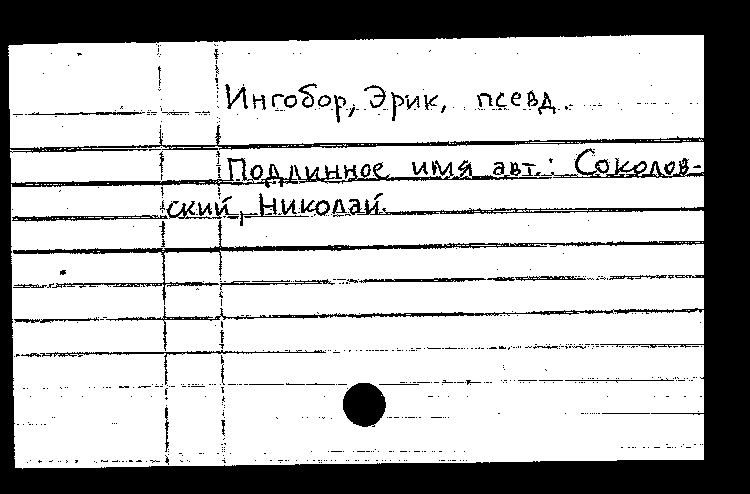 Ингобор, Эрик, псевд.
Подлинное имя авт.: Соколов-
ский, Николай.